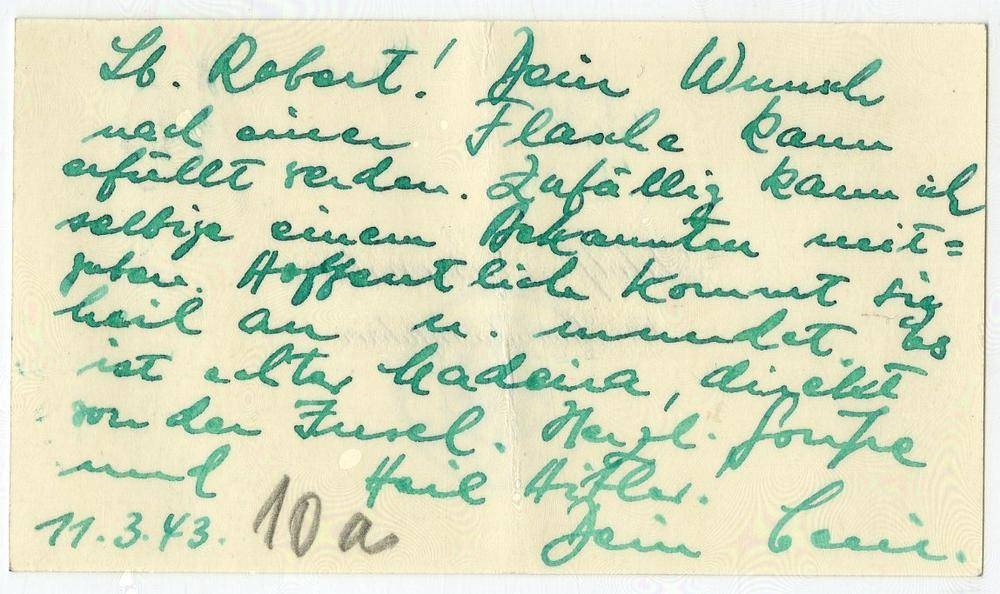 Lb. Robert! Dein Wunsch
nach einer Flasche kann
erfüllt werden. Zufällig kann ich
selbige einem Bekannten mit=
geben. Hoffentlich kommt sie
heil an u. mundet. Es
ist alter Madeira, direkt
von der Insel. Herzl. Grüße
und Heil Hitler.
11.3.43. 10a Dein